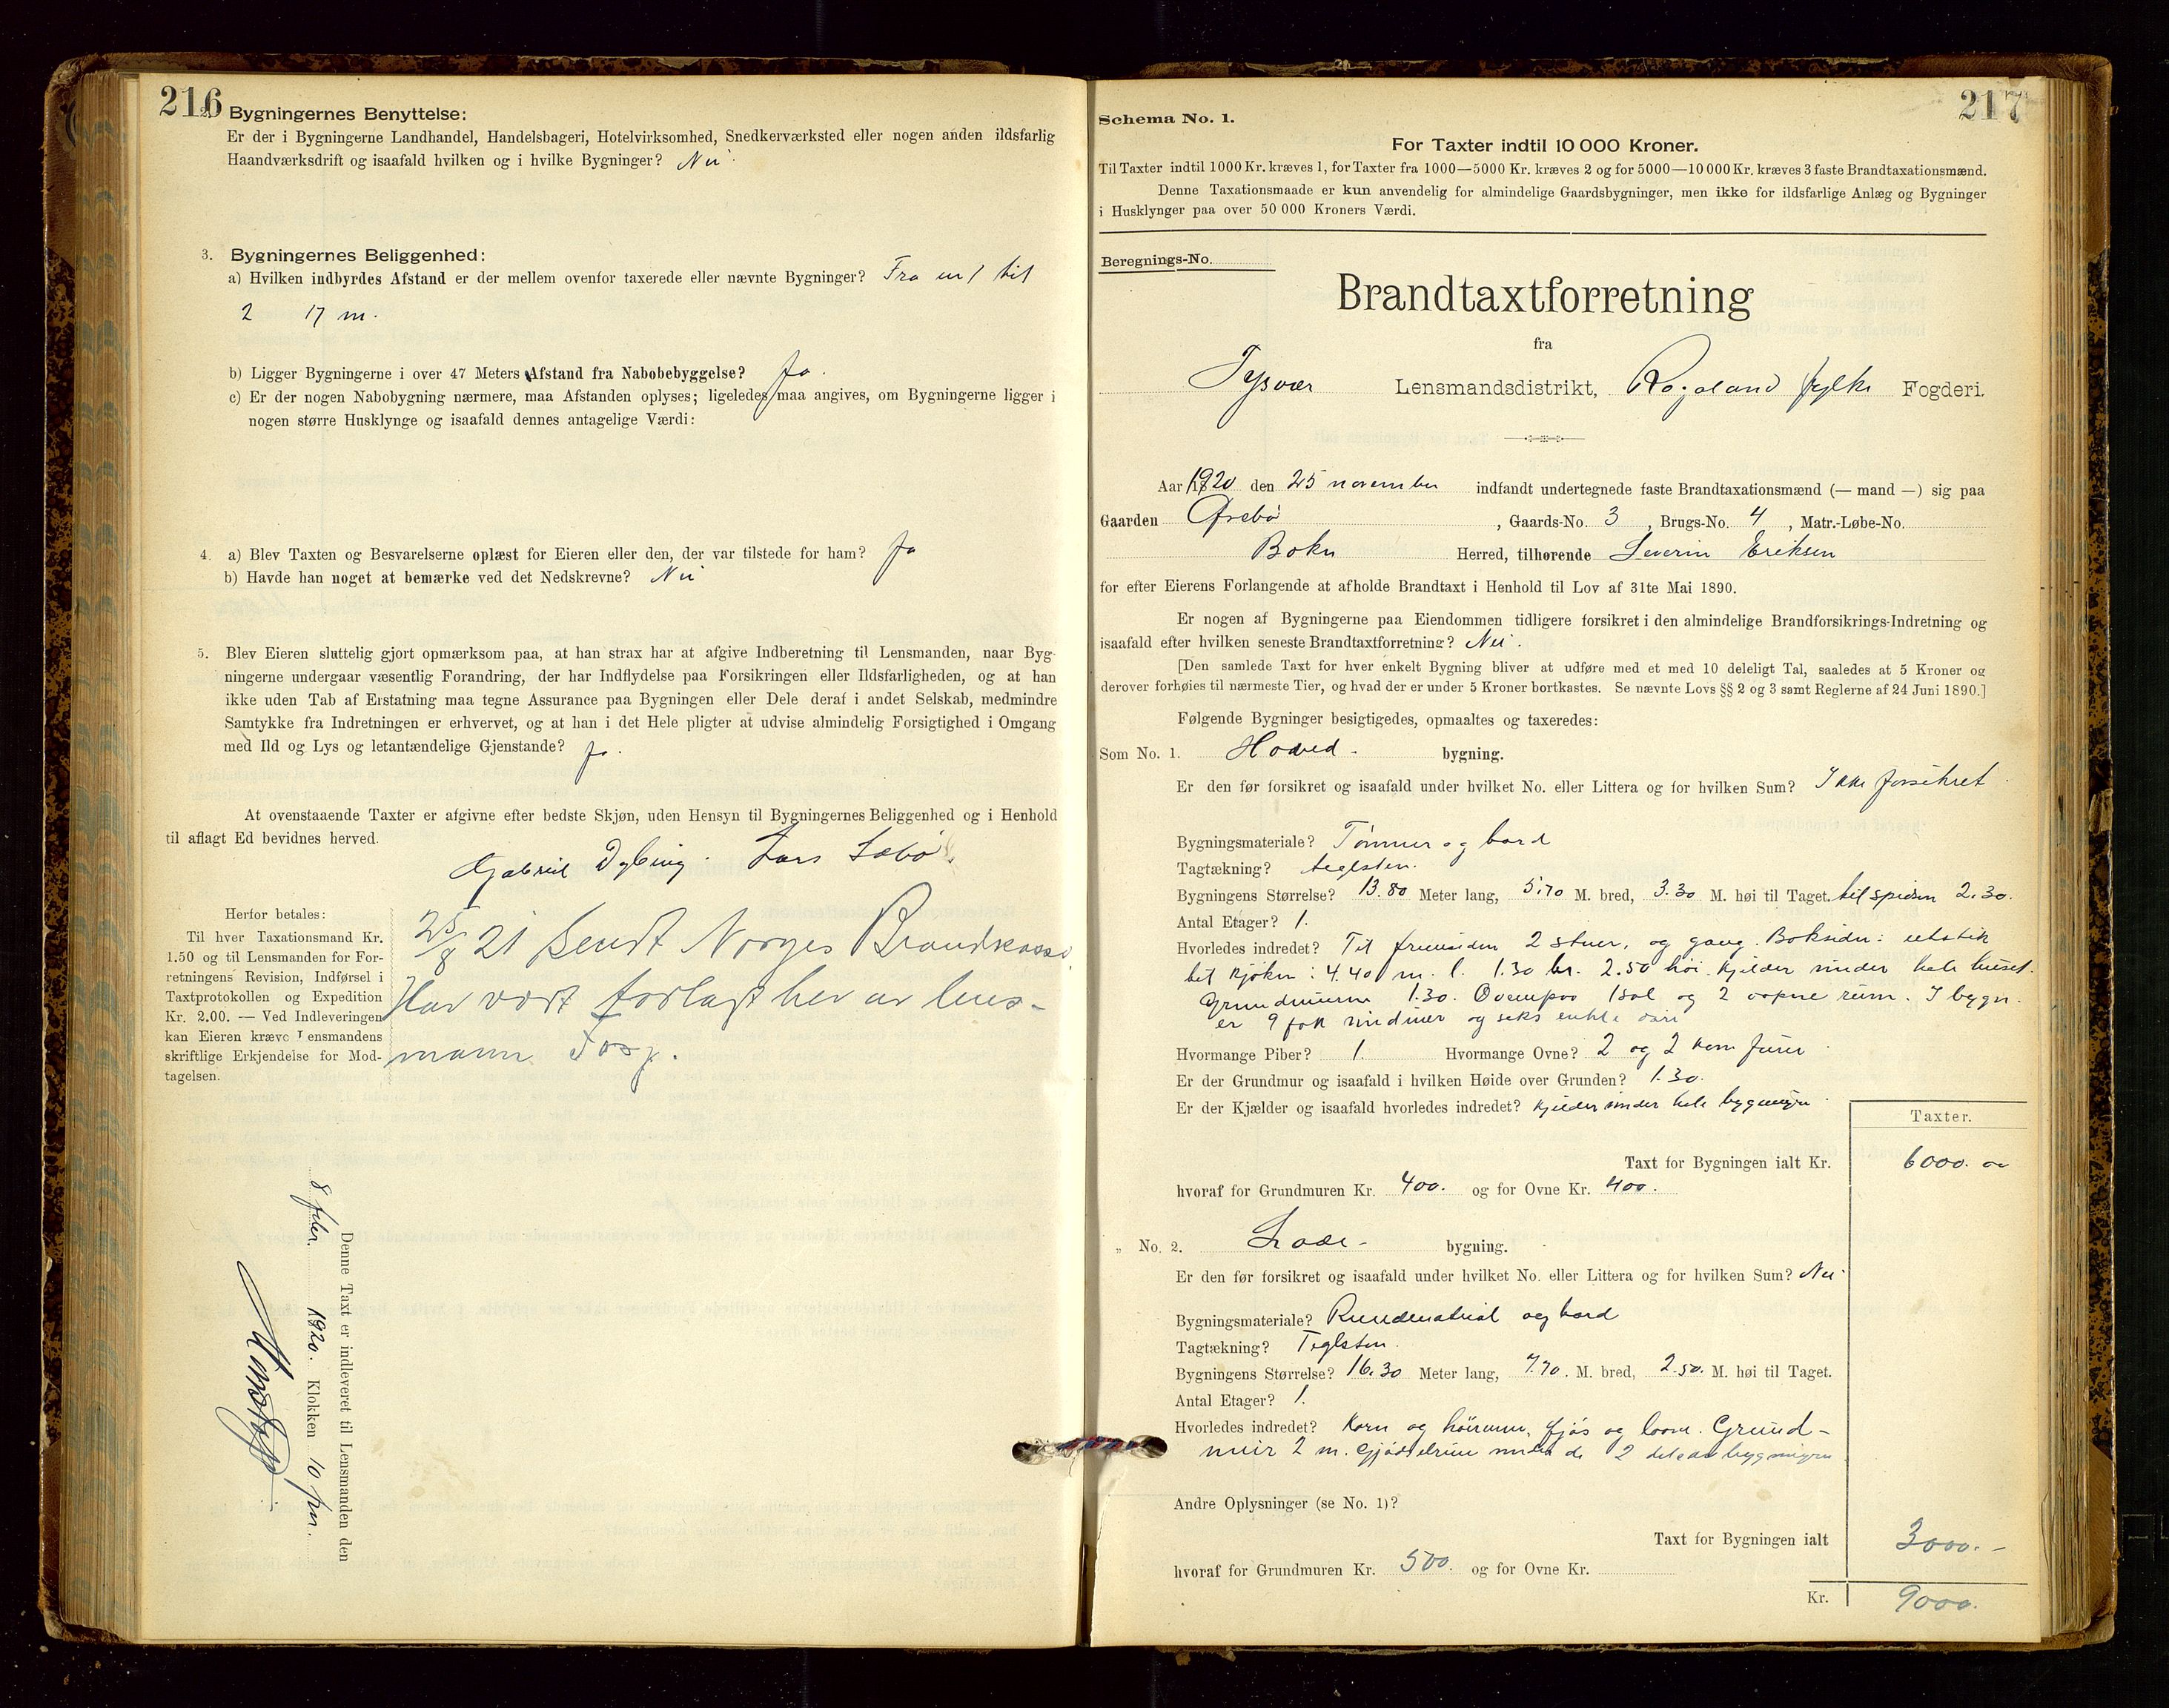 216
2. Bygningernes Benyttelse:
Er der i Bygningerne Landhandel, Handelsbageri, Hotelvirksomhed, Snedkerværksted eller nogen anden ildsfarlig
Haandværksdrift og isaafald hvilken og i hvilke Bygninger? Nei
3. Bygningernes Beliggenhed:
a) Hvilken indbyrdes Afstand er der mellem ovenfor taxerede eller nævnte Bygninger? Fra nr 1 til
2 17 m.
b) Ligger Bygningerne i over 47 Meters Afstand fra Nabobebyggelse? Ja.
c) Er der nogen Nabobygning nærmere, maa Afstanden oplyses; ligeledes maa angives, om Bygningerne ligger i
nogen større Husklynge og isaafald dennes antagelige Værdi:
4. a) Blev Taxten og Besvarelserne oplæst for Eieren eller den, der var tilstede for ham? Ja
b) Havde han noget at bemærke ved det Nedskrevne? Nei
5. Blev Eieren sluttelig gjort opmærksom paa, at han strax har at afgive Indberetning til Lensmanden, naar Byg-
ningerne undergaar væsentlig Forandring, der har Indflydelse paa Forsikringen eller Ildsfarligheden, og at han
ikke uden Tab af Erstatning maa tegne Assurance paa Bygningen eller Dele deraf i andet Selskab, medmindre
Samtykke fra Indretningen er erhvervet, og at han i det Hele pligter at udvise almindelig Forsigtighed i Omgang
med Ild og Lys og letantændelige Gjenstande? Ja.
At ovenstaaende Taxter er afgivne efter bedste Skjøn, uden Hensyn til Bygningernes Beliggenhed og i Henhold
til aflagt Ed bevidnes herved.
Gabriel Dybing. Lars Sebö.
Herfor betales:
Til hver Taxationsmand Kr.
1.50 og til Lensmanden for For-
retningens Revision, Indførsel i
Taxtprotokollen og Expedition
Kr. 2.00. — Ved Indleveringen
kan Eieren kræve Lensmandens
skriftlige Erkjendelse for Mod-
tagelsen.
25/8 21 Sendt Norges Brandkasse.
Har vært forlagt her av lens-
mann
Denne Taxt er indleveret til Lensmanden den
8 febr. 1920. Klokken 10 fm.
217
Schema No. 1.
For Taxter indtil 10 000 Kroner.
Til Taxter indtil 1000 Kr. kræves 1, for Taxter fra 1000—5000 Kr. kræves 2 og for 5000—10 000 Kr. kræves 3 faste Brandtaxationsmænd.
Denne Taxationsmaade er kun anvendelig for almindelige Gaardsbygninger, men ikke for ildsfarlige Anlæg og Bygninger
i Husklynger paa over 50 000 Kroners Værdi.
Beregnings-No.
Brandtaxtforretning
fra
Tysvær Lensmandsdistrikt, Rogaland fylke Fogderi.
Aar 1920 den 25 november indfandt undertegnede faste Brandtaxationsmænd (— mand —) sig paa
Gaarden Øvebø, Gaards-No. 3, Brugs-No. 4, Matr.-Løbe-No.
Bokn Herred, tilhørende Severin Eriksen
for efter Eierens Forlangende at afholde Brandtaxt i Henhold til Lov af 31te Mai 1890.
Er nogen af Bygningerne paa Eiendommen tidligere forsikret i den almindelige Brandforsikrings-Indretning og
isaafald efter hvilken seneste Brandtaxtforretning? Nei.
[Den samlede Taxt for hver enkelt Bygning bliver at udføre med et med 10 deleligt Tal, saaledes at 5 Kroner og
derover forhøies til nærmeste Tier, og hvad der er under 5 Kroner bortkastes. Se nævnte Lovs §§ 2 og 3 samt Reglerne af 24 Juni 1890.]
Følgende Bygninger besigtigedes, opmaaltes og taxeredes:
Som No. 1. Hoved- bygning.
Er den før forsikret og isaafald under hvilket No. eller Littera og for hvilken Sum? Ikke forsikret
Bygningsmateriale? Tömmer og bord
Tagtækning? teglsten.
Bygningens Størrelse? 13.80 Meter lang, 5.70 M. bred, 3.30 M. høi til Taget. til spidsen 2.30.
Antal Etager? 1.
Hvorledes indredet? Til fremsiden 2 stuer, og gang. Baksiden: utstik
til kjøken: 4.40 m. l. 1.30 br. 2.50 høi. Kjelder under hele huset.
Grundmuren 1.30. Ovenpaa 1 sal og 2 aapne rum. I bygn.
er 9 fak vinduer og seks enkle döre
Hvormange Piber? 1. Hvormange Ovne? 2 og 2 komfurer
Er der Grundmur og isaafald i hvilken Høide over Grunden? 1.30.
Er der Kjælder og isaafald hvorledes indredet? Kjelder under hele bygningen.
Taxter.
Taxt for Bygningen ialt Kr. 6000. 00
hvoraf for Grundmuren Kr. 400. og for Ovne Kr. 400.
„ No. 2. Lade- bygning.
Er den før forsikret og isaafald under hvilket No. eller Littera og for hvilken Sum? Nei
Bygningsmateriale? Rundmatrial og bord
Tagtækning? Teglsten.
Bygningens Størrelse? 16.30 Meter lang, 7.70. M. bred, 2.50. M. høi til Taget.
Antal Etager? 1.
Hvorledes indredet? Korn og hörum, fjøs og loove. Grund-
muir 2 m. Gjødselrum under de 2 dele av bygningen
Andre Oplysninger (se No. 1)?
Taxt for Bygningen ialt 3000.-
hvoraf for Grundmuren Kr. 500. og for Ovne Kr.
Kr. 9000.